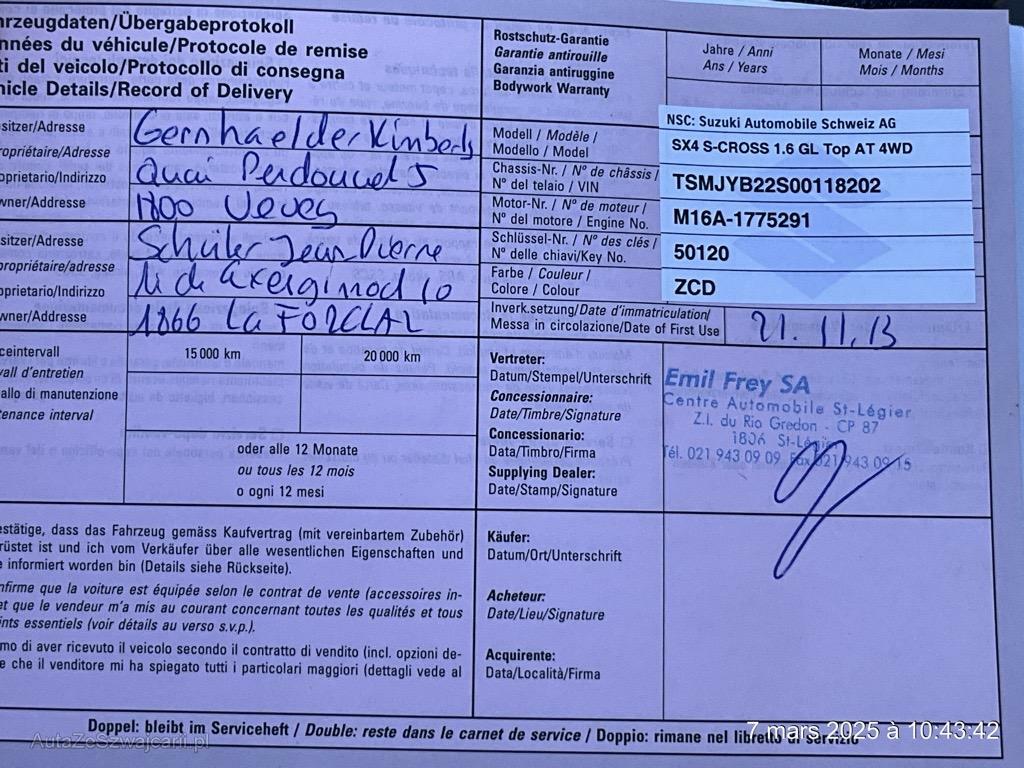 rzeugdaten/Übergabeprotokoll
nnées du véhicule/Protocole de remise
ti del veicolo/Protocollo di consegna
hicle Details/Record of Delivery
Rostschutz-Garantie
Garantie antirouille
Garanzia antiruggine
Bodywork Warranty
Jahre / Anni
Ans / Years
Monate / Mesi
Mois / Months
sitzer/Adresse
ropriétaire/Adresse
oprietario/Indirizzo
wner/Address
Gernhaelder Kimberly
Quai Perdonnet 5
1800 Vevey
sitzer/Adresse
propriétaire/adresse
oprietario/Indirizzo
wner/Address
Schüler Jean Pierre
10
1866 La FORCLAZ
NSC: Suzuki Automobile Schweiz AG
Modell / Modèle /
Modello / Model
SX4 S-CROSS 1.6 GL Top AT 4WD
Chassis-Nr. / N° de châssis /
N° del telaio / VIN
TSMJYB22S00118202
Motor-Nr. / N° de moteur /
N° del motore / Engine No.
M16A-1775291
Schlüssel-Nr. / N° des clés /
N° delle chiavi/Key No.
50120
Farbe / Couleur /
Colore / Colour
ZCD
Inverk.setzung/Date d'immatriculation/
Messa in circolazione/Date of First Use
21.11.13
ceintervall
vall d'entretien
allo di manutenzione
tenance interval
15 000 km
20 000 km
oder alle 12 Monate
ou tous les 12 mois
o ogni 12 mesi
Vertreter:
Datum/Stempel/Unterschrift
Concessionnaire:
Date/Timbre/Signature
Concessionario:
Data/Timbro/Firma
Supplying Dealer:
Date/Stamp/Signature
Emil Frey SA
Centre Automobile St-Légier
Z.I. du Rio Gredon - CP 87
1806 St-Légier
Tél. 021 943 09 09 Fax 021 943 09 15
estätige, dass das Fahrzeug gemäss Kaufvertrag (mit vereinbartem Zubehör)
rüstet ist und ich vom Verkäufer über alle wesentlichen Eigenschaften und
e informiert worden bin (Details siehe Rückseite).
nfirme que la voiture est équipée selon le contrat de vente (accessoires in-
et que le vendeur m'a mis au courant concernant toutes les qualités et tous
ints essentiels (voir détails au verso s.v.p.).
mo di aver ricevuto il veicolo secondo il contratto di vendito (incl. opzioni de-
e che il venditore mi ha spiegato tutti i particolari maggiori (dettagli vede al
Käufer:
Datum/Ort/Unterschrift
Acheteur:
Date/Lieu/Signature
Acquirente:
Data/Località/Firma
Doppel: bleibt im Serviceheft / Double: reste dans le carnet de service / Doppio: rimane nel libretto di servizio
7 mars 2025 à 10:43:42
AutaZeSzwajcarii.pl